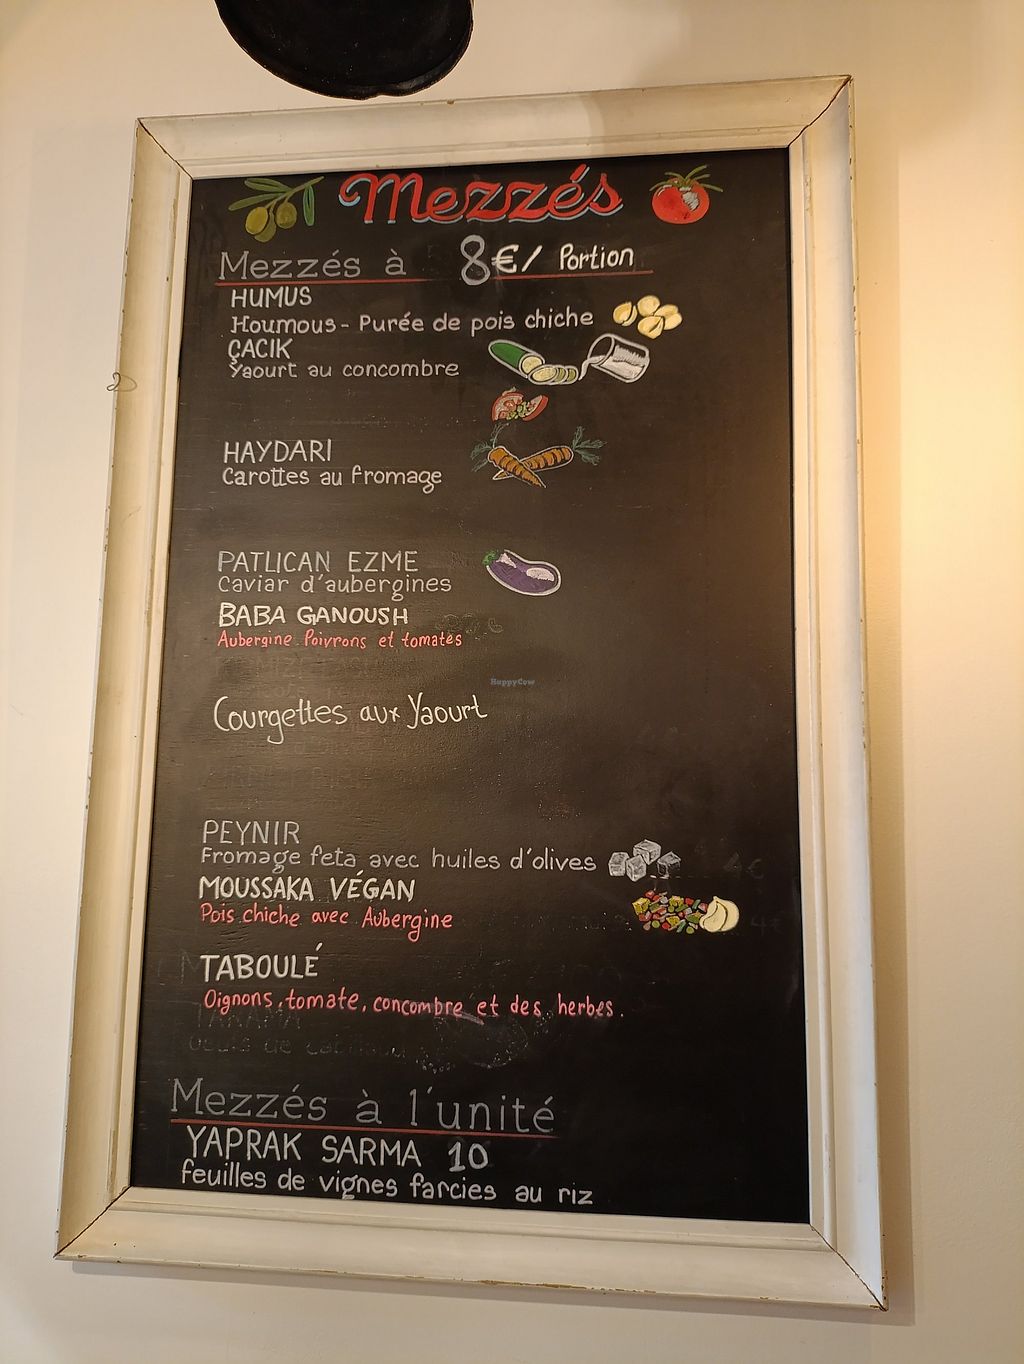 Mezzés
Mezzés à 8€/ Portion
HUMUS
Houmous - Purée de pois chiche
ÇACIK
Yaourt au concombre
HAYDARI
Carottes au fromage
PATLICAN EZME
Caviar d'aubergines
BABA GANOUSH
Aubergine Poivrons et tomates
HappyCow
Courgettes aux Yaourt
PEYNIR
Fromage feta avec huiles d'olives
4€
MOUSSAKA VÉGAN
Pois chiche avec Aubergine
4€
TABOULÉ
Oignons, tomate, concombre et des herbes.
TARAMA
Mezzés à l'unité
YAPRAK SARMA 10
feuilles de vignes farcies au riz